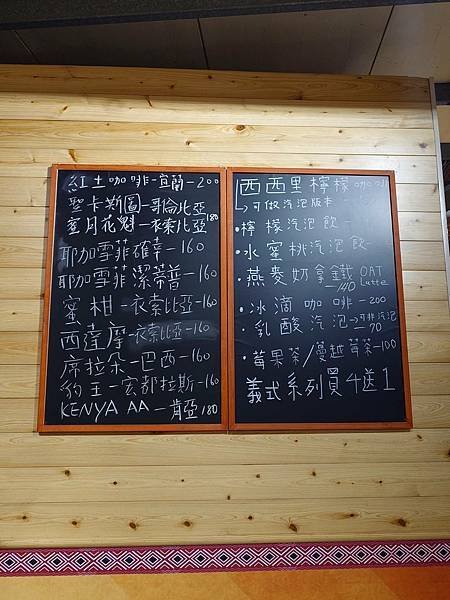 紅土咖啡-宜蘭-200
聖卡斯圖-哥倫比亞
蜜月花魁-衣索比亞 180
耶加雪菲確幸-160
耶加雪菲潔蒂普-160
蜜柑-衣索比亞-160
西達摩-衣索比亞-160
席拉朵-巴西-160
豹王-宏都拉斯-160
KENYA AA-肯亞 180
西西里檸檬咖啡
↳可做汽泡版本-
·檸檬汽泡飲-
·水蜜桃汽泡飲-
·燕麥奶拿鐵 OAT Latte
-140
·冰滴咖啡-200
·乳酸汽泡→可非汽泡
70
·莓果茶/蔓越莓茶-100
義式系列買4送1